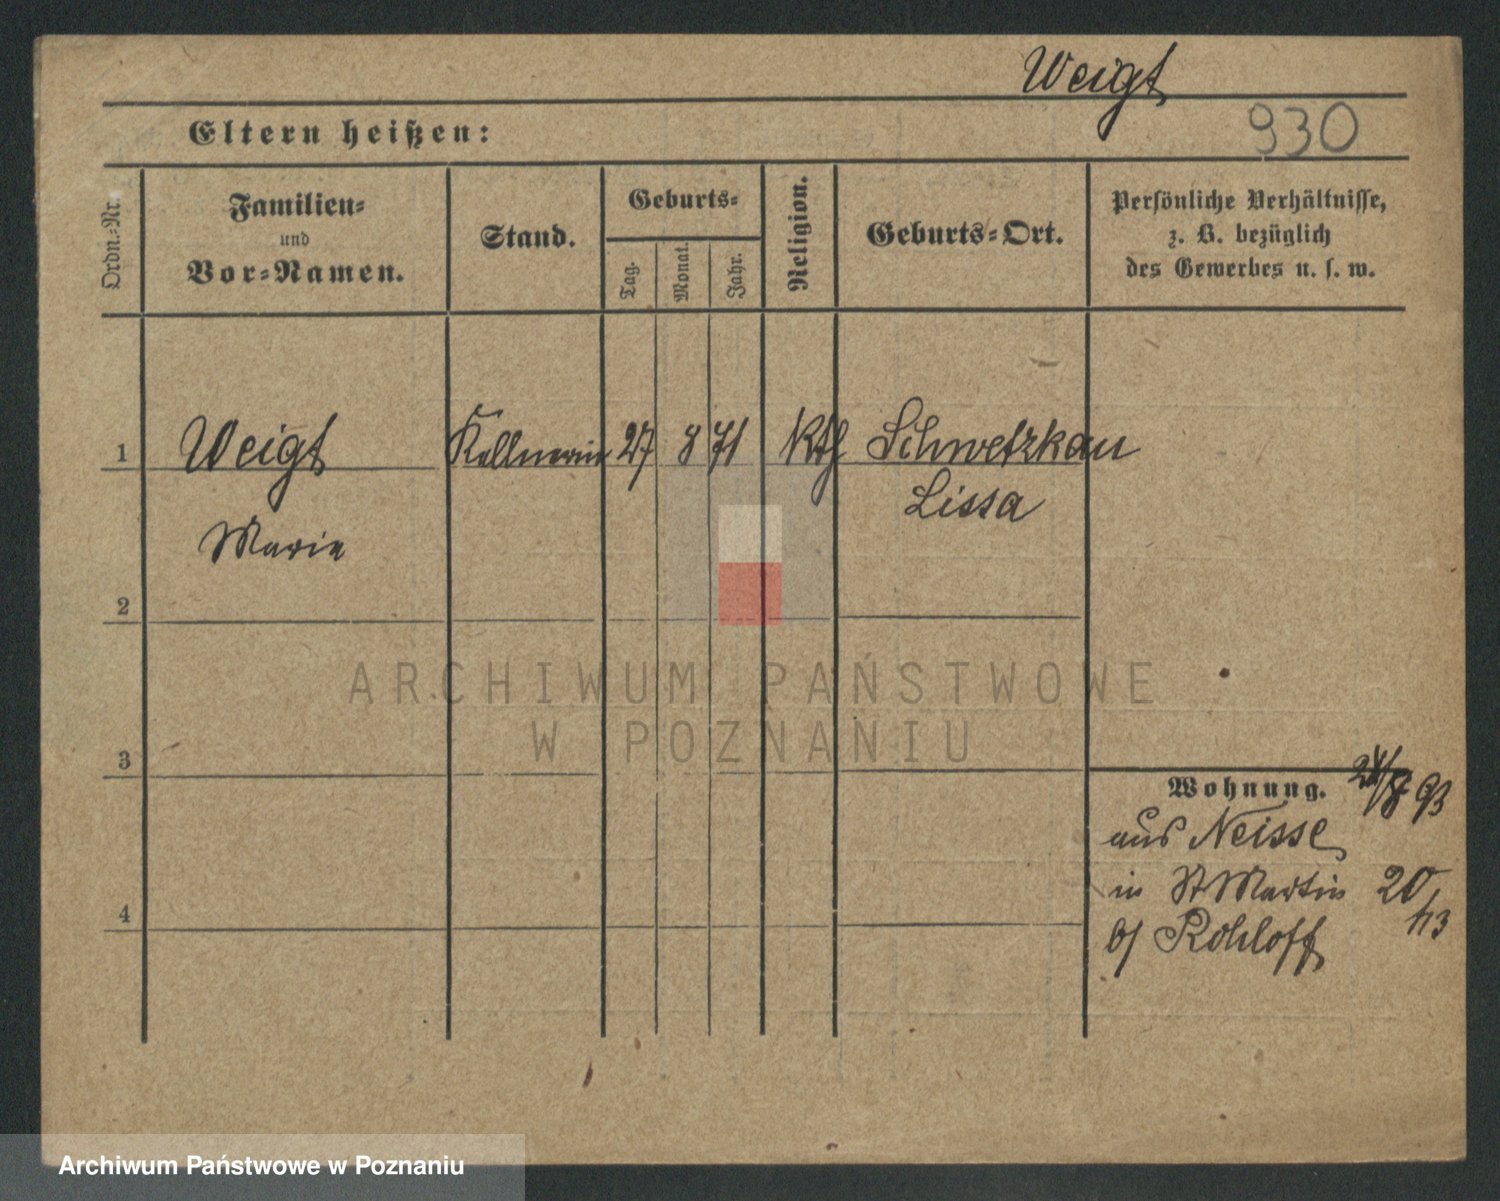 Weigt
Eltern heißen:
930
Ordn.-Nr.
Familien-
und
Vor-Namen.
Stand.
Geburts-
Tag.
Monat.
Jahr.
Religion.
Geburts-Ort.
Persönliche Verhältnisse,
z. B. bezüglich
des Gewerbes u. s. w.
1
Weigt
Kellnerin
27
8
71
kth
Schwetzkau
Lissa
Marie
2
ARCHIWUM PAŃSTWOWE
W POZNANIU
3
Wohnung.
24/8 93
aus Neisse
in St Martin 20
b/ Rohloff
4
Archiwum Państwowe w Poznaniu